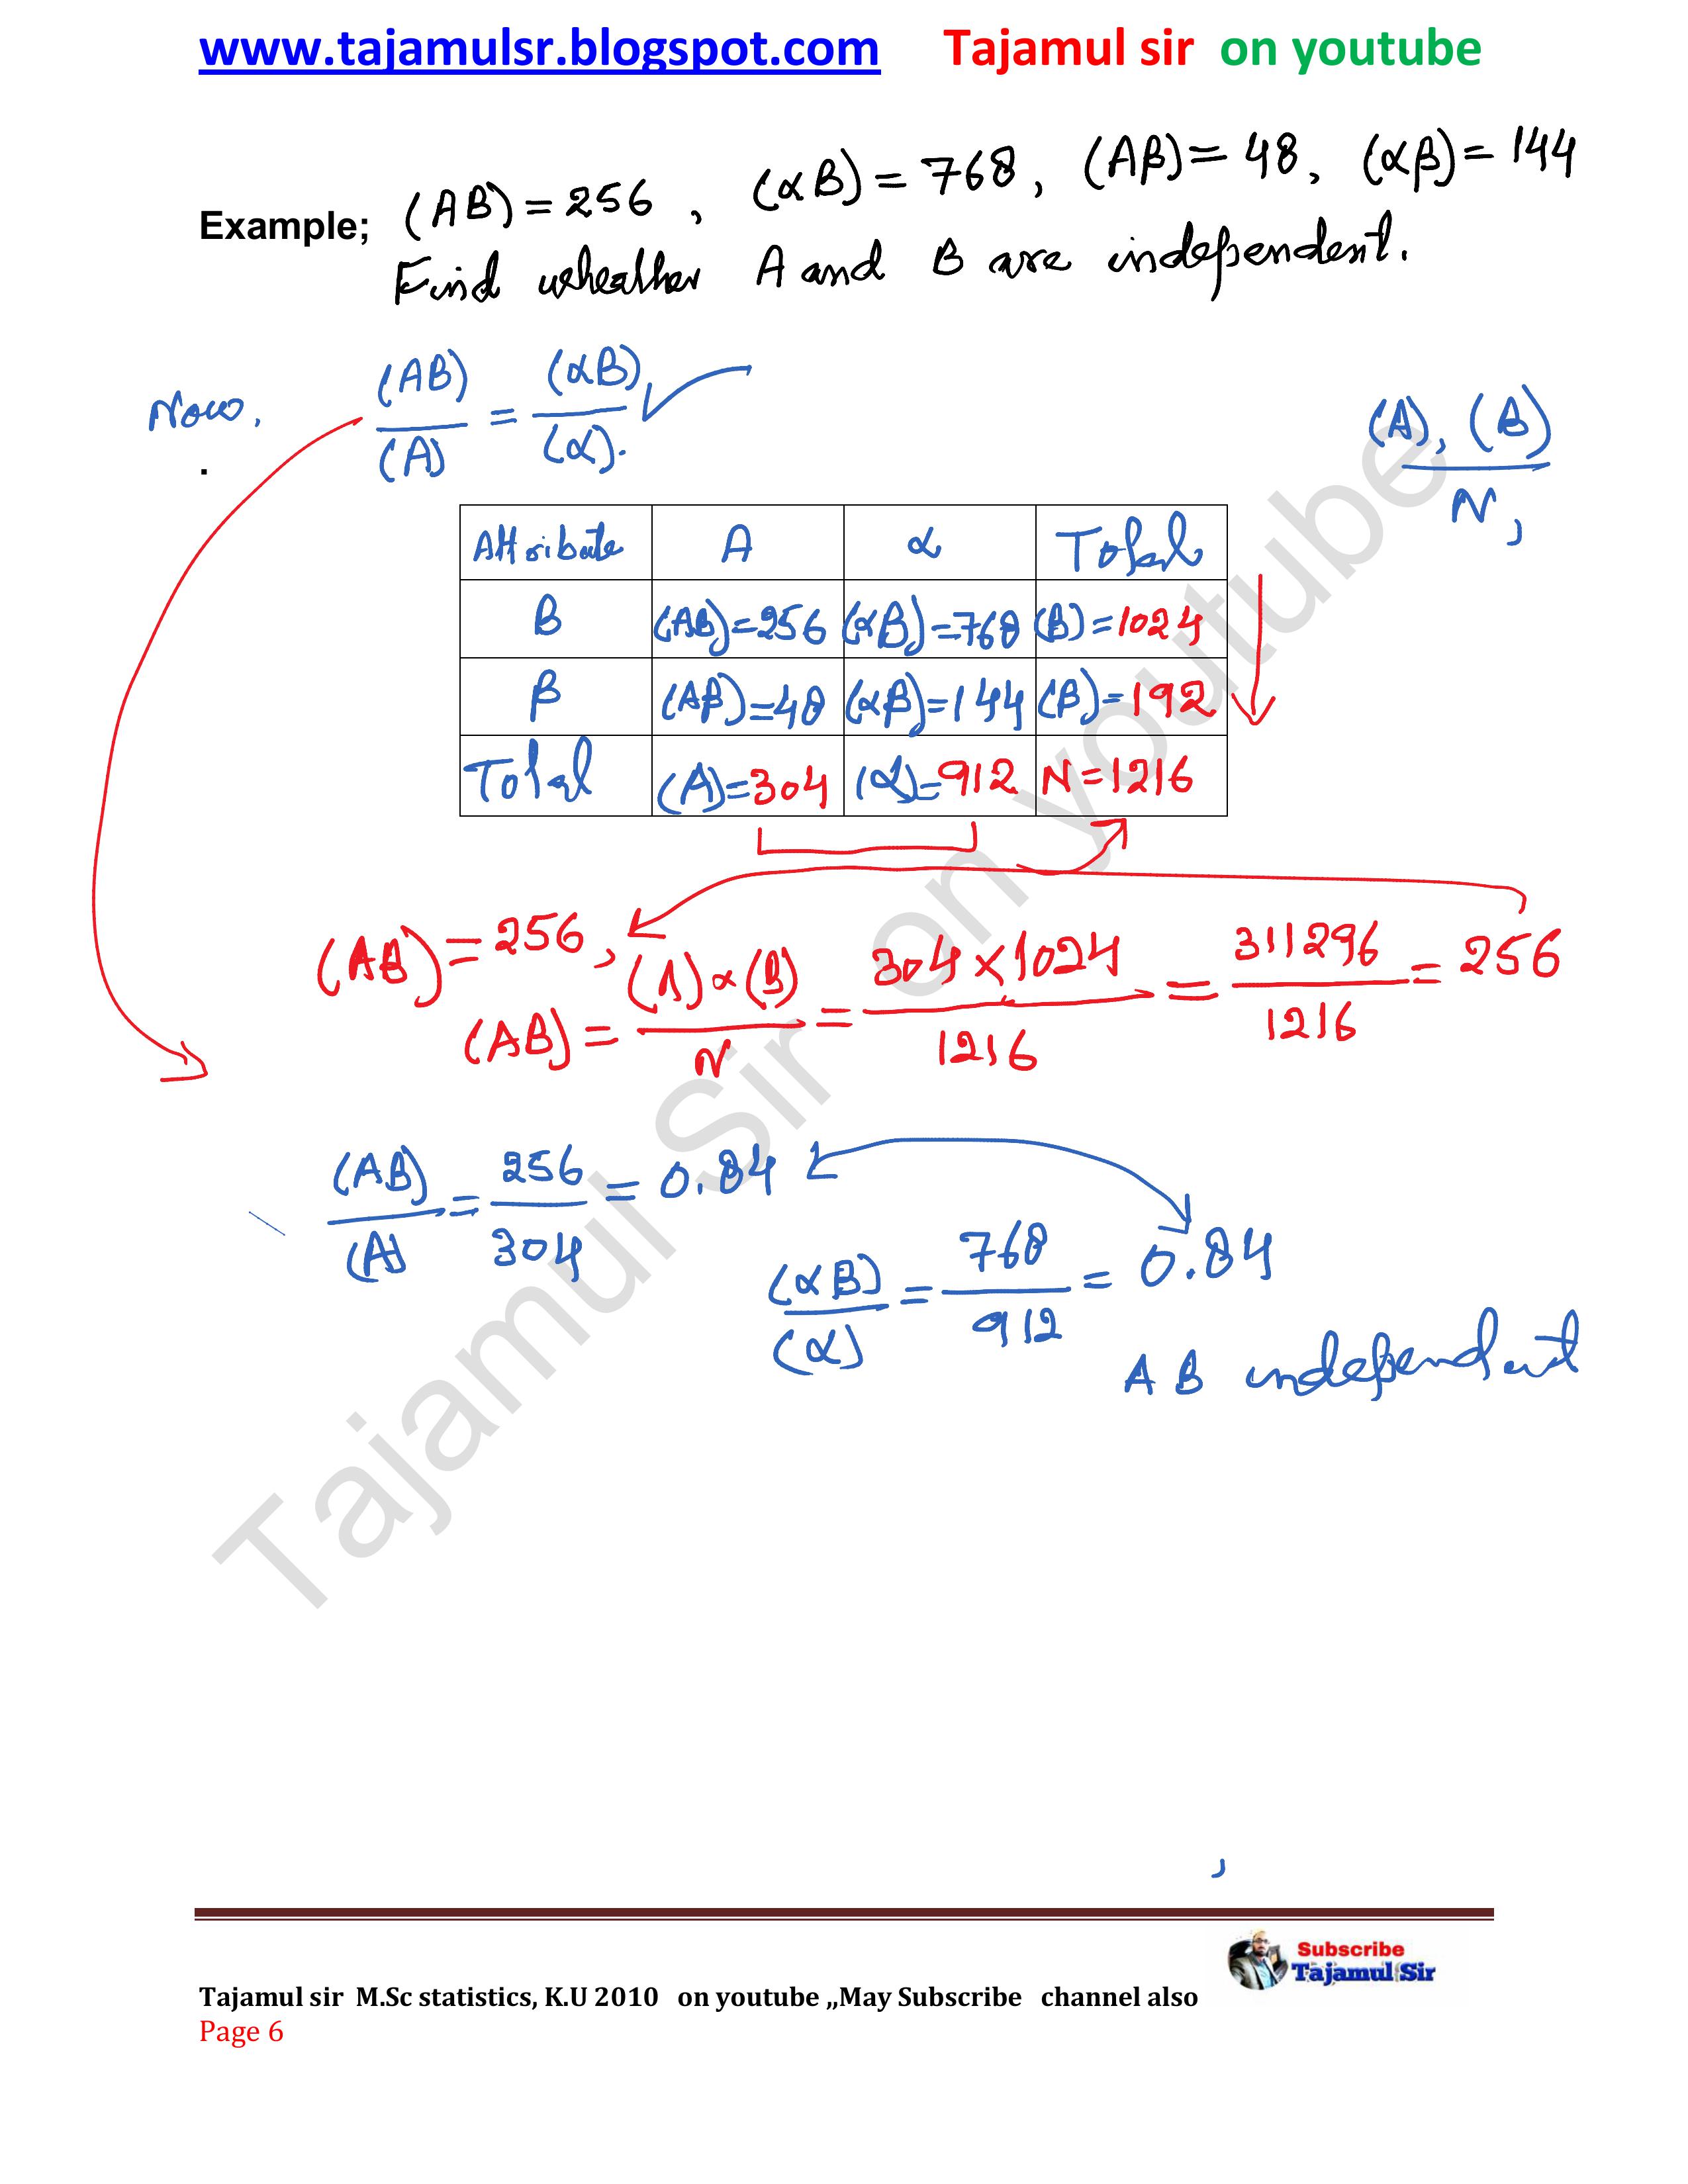 www.tajamulsr.blogspot.com Tajamul sir on youtube
Example; (AB) = 256 , (αB) = 768 , (Aβ) = 48 , (αβ) = 144
Find wheather A and B are independent.
Now, (AB)/(A) = (αB)/(α).
.
(A), (B)/N,
Attribute A α Total
B (AB)=256 (αB)=768 (B)=1024
β (Aβ)=48 (αβ)=144 (β)=192
Total (A)=304 (α)=912 N=1216
(AB) = 256 ,
(AB) = (A)×(B)/N = 304×1024/1216 = 311296/1216 = 256
(AB)/(A) = 256/304 = 0.84
(αB)/(α) = 768/912 = 0.84
A B independent
,
Tajamul Sir on youtube
Subscribe
Tajamul Sir
Tajamul sir M.Sc statistics, K.U 2010 on youtube ,,May Subscribe channel also
Page 6